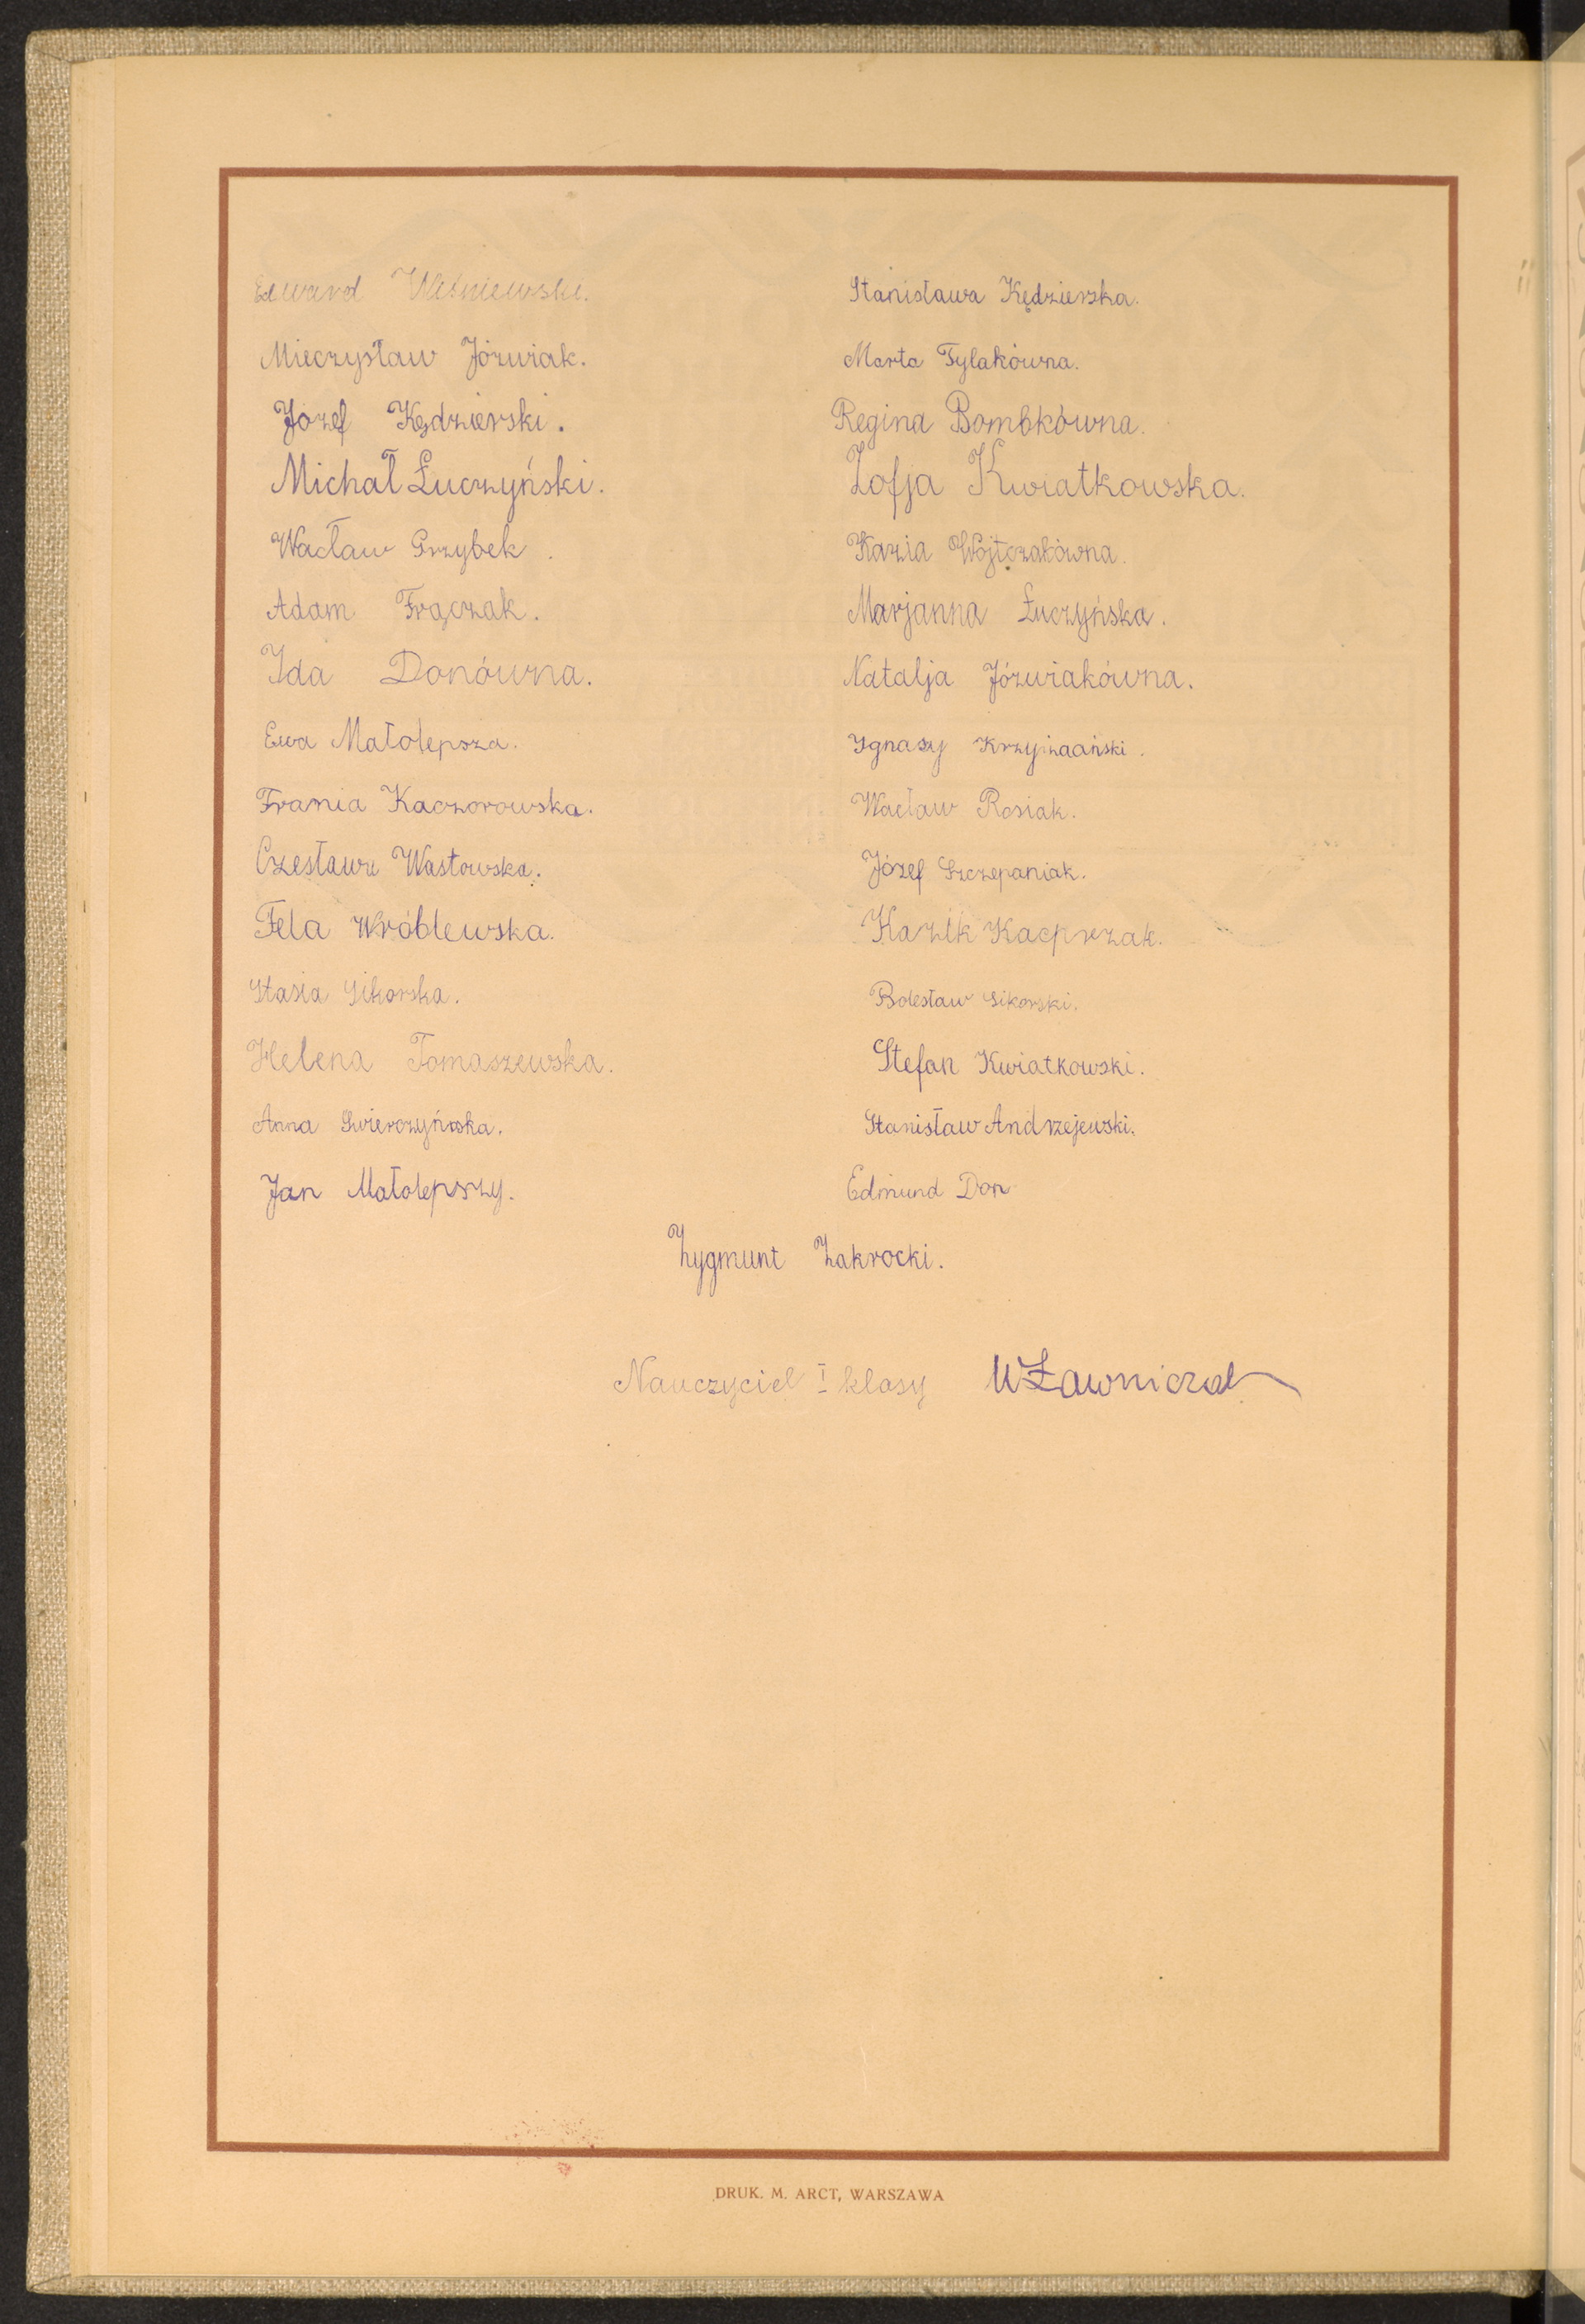 Edward Wiśniewski.
Mieczysław Jóźwiak.
Józef Kędzierski.
Michał Łuczyński.
Wacław Grzybek.
Adam Frączak.
Ida Donówna.
Ewa Małolepsza.
Frania Kaczorowska.
Czesława Wasłowska.
Fela Wróblewska.
Stasia Sikorska.
Helena Tomaszewska.
Anna Swierczyńska.
Jan Małolepszy.
Stanisława Kędzierska.
Marta Tylakówna.
Regina Bombkówna.
Zofja Kwiatkowska.
Kazia Wojtczakówna.
Marjanna Łuczyńska.
Natalja Józwiakówna.
Ygnasy Krzyżaański.
Wacław Rosiak.
Józef Szczepaniak.
Kazik Kacprzak.
Bolesław Sikorski.
Stefan Kwiatkowski.
Stanisław Andrzejewski.
Edmund Don
Zygmunt Zakrocki.
Nauczyciel I klasy WŁawniczak
DRUK. M. ARCT, WARSZAWA